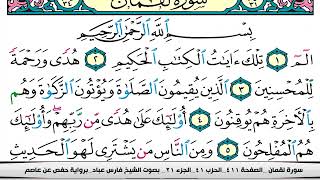 سورة لقمان
بِسْمِ اللَّهِ الرَّحْمَٰنِ الرَّحِيمِ
الٓمٓ ١ تِلْكَ ءَايَٰتُ الْكِتَٰبِ الْحَكِيمِ ٢ هُدًى وَرَحْمَةً
لِّلْمُحْسِنِينَ ٣ الَّذِينَ يُقِيمُونَ الصَّلَوٰةَ وَيُؤْتُونَ الزَّكَوٰةَ وَهُم
بِالْءَاخِرَةِ هُمْ يُوقِنُونَ ٤ أُو۟لَٰٓئِكَ عَلَىٰ هُدًى مِّن رَّبِّهِمْ وَأُو۟لَٰٓئِكَ
هُمُ الْمُفْلِحُونَ ٥ وَمِنَ النَّاسِ مَن يَشْتَرِى لَهْوَ الْحَدِيثِ
سورة لقمان _ الصفحة ٤١١ _ الحزب ٤١ _ الجزء ٢١ _ بصوت الشيخ فارس عباد _ برواية حفص عن عاصم